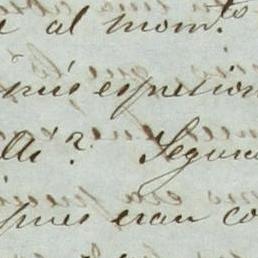 al mom.to
mis espresion
lli? Segura
pues eran co